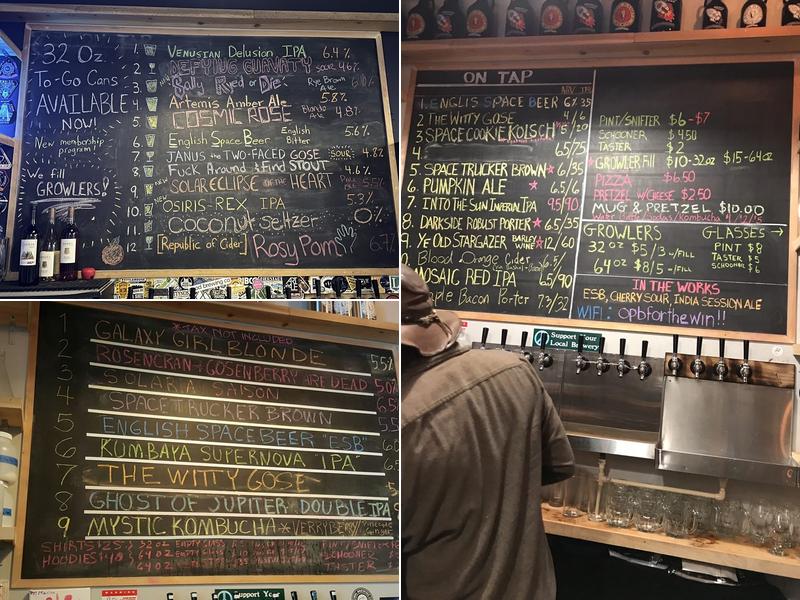 32 Oz
To-Go Cans
AVAILABLE
NOW!
New membership
program!
We fill
GROWLERS!
1. VENUSIAN Delusion IPA 6.4%
2. DEFYING GUAVATY SOUR 4.6%
3. Sally Ryed or Die: Rye Brown Ale 6.0%
4. Artemis Amber Ale 5.8%
5 COSMIC ROSE Blonde Ale 4.8%
6 English Space Beer English Bitter 5.6%
7 JANUS the TWO-FACED GOSE SOUR 4.8%
8 Fuck Around & Find STOUT 4.6%
9 SOLAR ECLIPSE OF THE HEART 5.5%
10 OSIRIS-REX IPA 5.3%
11 Coconut seltzer 0%
12 [Republic of Cider] Rosy Pom
ON TAP
1. ENGLISH SPACE BEER 6/35
2 THE WITTY GOSE 4/6
3 SPACE COOKIE KOLSCH
4. 65/75
5. SPACE TRUCKER BROWN * 6/35
6. PUMPKIN ALE * 6.5/6
7. INTO THE SUN IMPERIAL IPA 95/90
8. DARKSIDE ROBUST PORTER * 6.5/35
9. YE OLD STARGAZER BARLEY WINE * 12/60
Blood Orange Cider
MOSAIC RED IPA 65/90
Maple Bacon Porter 73/32
PINT/SNIFTER $6-$7
SCHOONER $4.50
TASTER $2
* GROWLER Fill $10-32oz $15-64oz
PIZZA $6.50
PRETZEL W/CHEESE $2.50
MUG & PRETZEL $10.00
GROWLERS
32 OZ $5/3 w/FILL
64 OZ $8/5 w/FILL
GLASSES →
PINT $8
TASTER $5
SCHOONER $6
IN THE WORKS
ESB, CHERRY SOUR, INDIA SESSION ALE
WIFI: opbforthewin!!
Support Your
Local Brewery
*TAX NOT INCLUDED
1 GALAXY GIRL BLONDE 5.5%
2 ROSENCRAN & GOSENBERRY ARE DEAD 5.0%
3 SOLARIA SAISON
4 SPACE TRUCKER BROWN
5 ENGLISH SPACE BEER "ESB"
6 KUMBAYA SUPERNOVA "IPA"
7 THE WITTY GOSE
8 GHOST OF JUPITER DOUBLE IPA
9 MYSTIC KOMBUCHA * VERRYBERRY/Pineapple Ginger
SHIRTS $25
HOODIES $40
32 OZ EMPTY GLASS
64 OZ EMPTY GLASS
64 OZ
SCHOONER
TASTER
Support Your